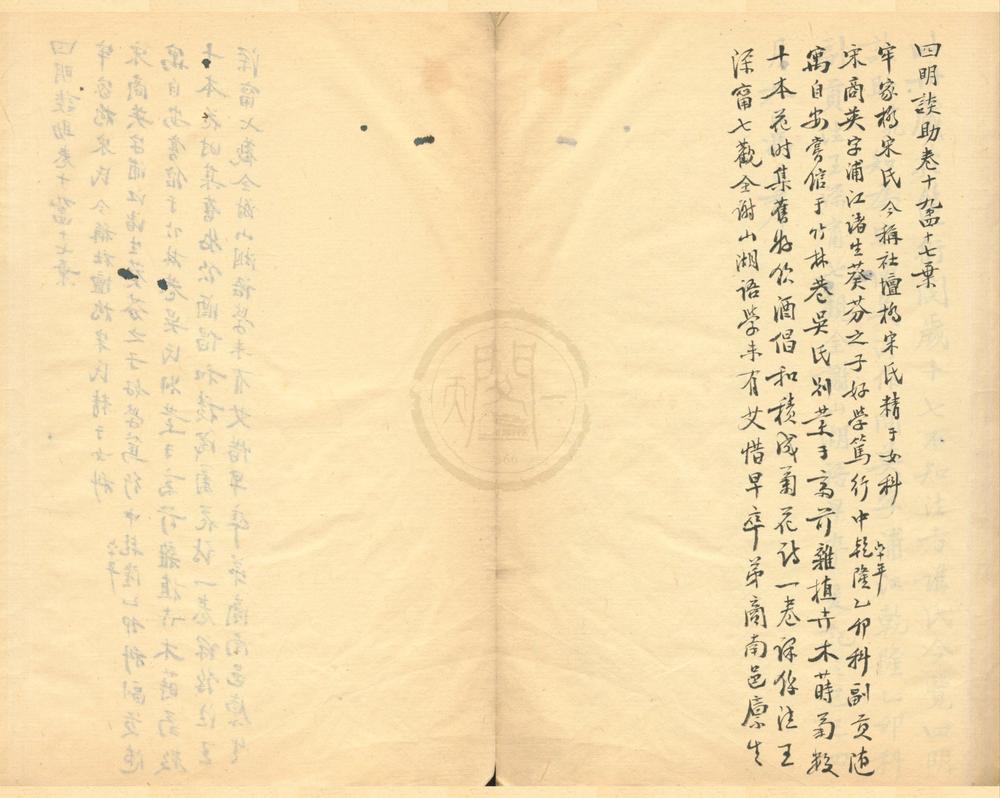 四明談助卷十九第四十七葉
牢家橋宋氏今稱社壇橋宋氏精于女科
宋商英字浦江諸生葵芬之子好學篤行中乾隆六十年乙卯科副貢隨
寓自安嘗信于竹林巷吳氏別業于高前雜植卉木蒔菊數
十本花時集舊好飲酒倡和積成菊花詩一卷詳佚注王
深甯七觀全謝山湖語學未有艾惜早卒弟商南邑廩生